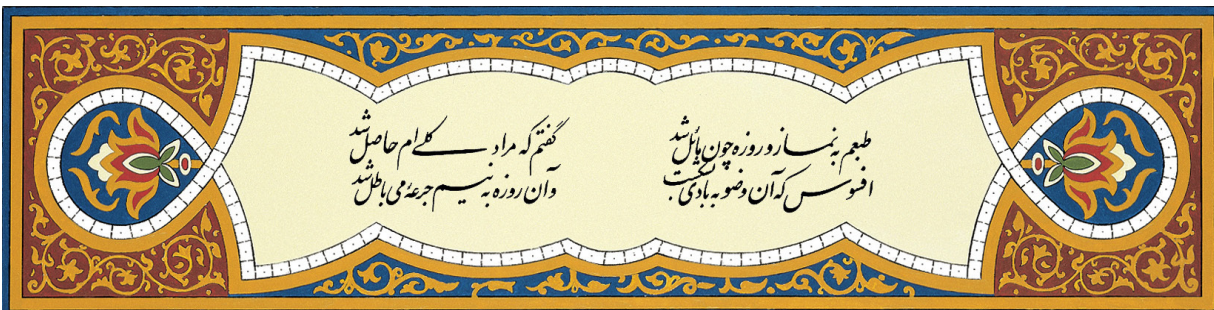 طبعم به نماز و روزه چون مائل شد
گفتم که مراد کلی‌ام حاصل شد
افسوس که آن وضو به بادی بشکست
وآن روزه به نیم جرعهٔ می باطل شد